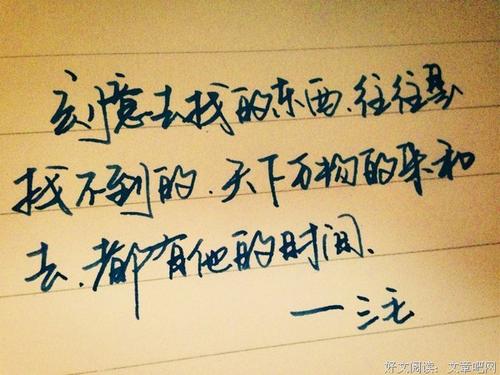 刻意去找的东西、往往是
找不到的、天下万物的来和
去、都有他的时间、
——三毛
好文阅读：文章吧网